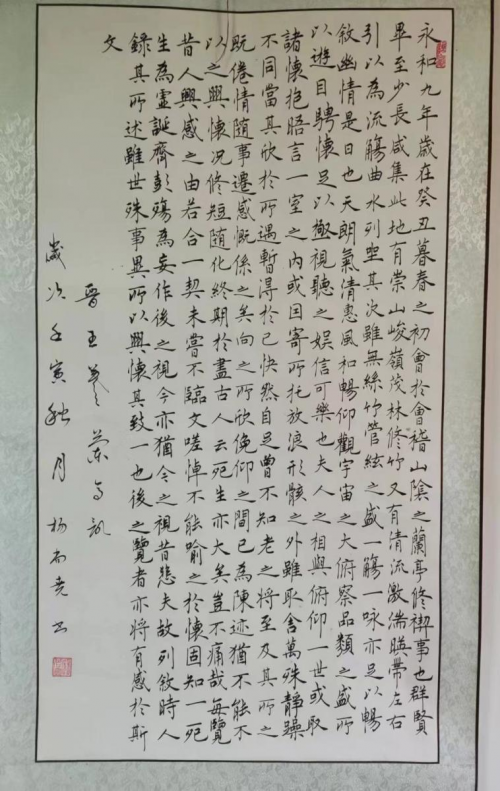 永和九年歲在癸丑暮春之初會於會稽山陰之蘭亭修禊事也群賢
畢至少長咸集此地有崇山峻嶺茂林修竹又有清流激湍暎帶左右
引以為流觴曲水列坐其次雖無絲竹管絃之盛一觴一咏亦足以暢
敘幽情是日也天朗氣清惠風和暢仰觀宇宙之大俯察品類之盛所
以遊目騁懷足以極視聽之娛信可樂也夫人之相與俯仰一世或取
諸懷抱晤言一室之內或因寄所托放浪形骸之外雖取舍萬殊靜躁
不同當其欣於所遇暫得於己快然自足曾不知老之將至及其所之
既倦情隨事遷感慨係之矣向之所欣俛仰之間已為陳迹猶不能不
以之興懷況修短隨化終期於盡古人云死生亦大矣豈不痛哉每覽
昔人興感之由若合一契未嘗不臨文嗟悼不能喻之於懷固知一死
生為虛誕齊彭殤為妄作後之視今亦猶今之視昔悲夫故列敘時人
錄其所述雖世殊事異所以興懷其致一也後之覽者亦將有感於斯
文
晉王羲之蘭亭敘
歲次壬寅秋月楊書